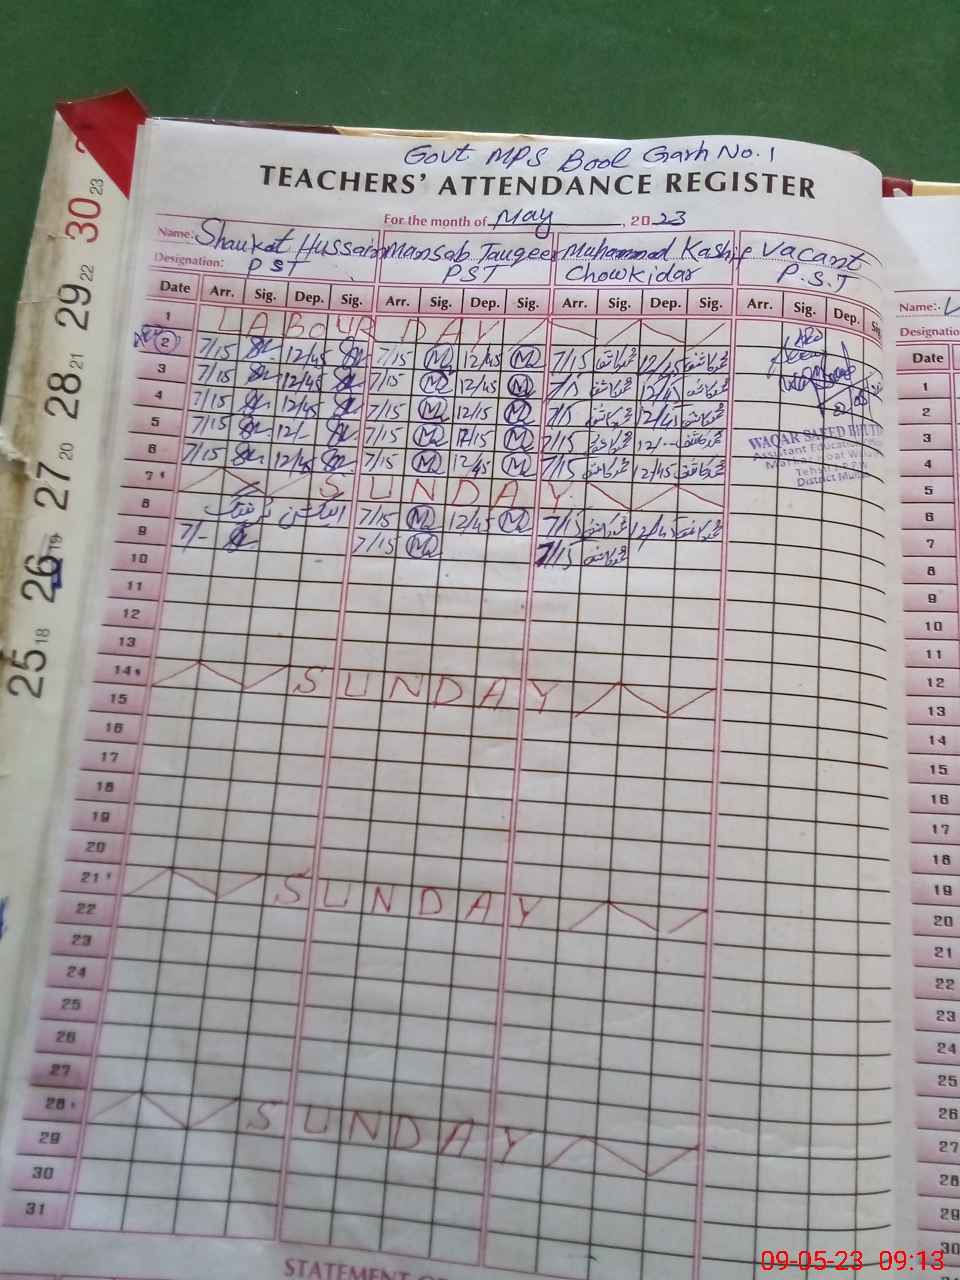 Govt MPS Bool Garh No. 1
TEACHERS' ATTENDANCE REGISTER
For the month of May, 2023
Name: Shaukat Hussain Mansab Tauqeer Muhammad Kashif Vacant
Designation: PST PST Chowkidar P.S.T
Date Arr. Sig. Dep. Sig. Arr. Sig. Dep. Sig. Arr. Sig. Dep. Sig. Arr. Sig. Dep. Sig.
1 LABOUR DAY
2 7/15 12/45 7/15 M 12/45 M 7/15 12/45
3 7/15 12/45 7/15 M 12/45 M 7/15 12/45
4 7/15 12/45 7/15 M 12/15 M 7/15 12/45
5 7/15 12/- 7/15 M 12/15 M 7/15 12/-
6 7/15 12/45 7/15 M 12/45 M 7/15 12/45
7 SUNDAY
8 7/15 M 12/45 M 7/15 12/45
9 7/- 7/15 M 7/15
10
11
12
13
14 SUNDAY
15
16
17
18
19
20
21 SUNDAY
22
23
24
25
26
27
28 SUNDAY
29
30
31
WAQAR SAEED
Assistant Education
District
STATEMENT
30 23
29 22
28 21
27 20
26 19
25 18
Name:
Designatio
Date
1
2
3
4
5
6
7
8
9
10
11
12
13
14
15
16
17
18
19
20
21
22
23
24
25
26
27
28
29
30
09-05-23 09:13